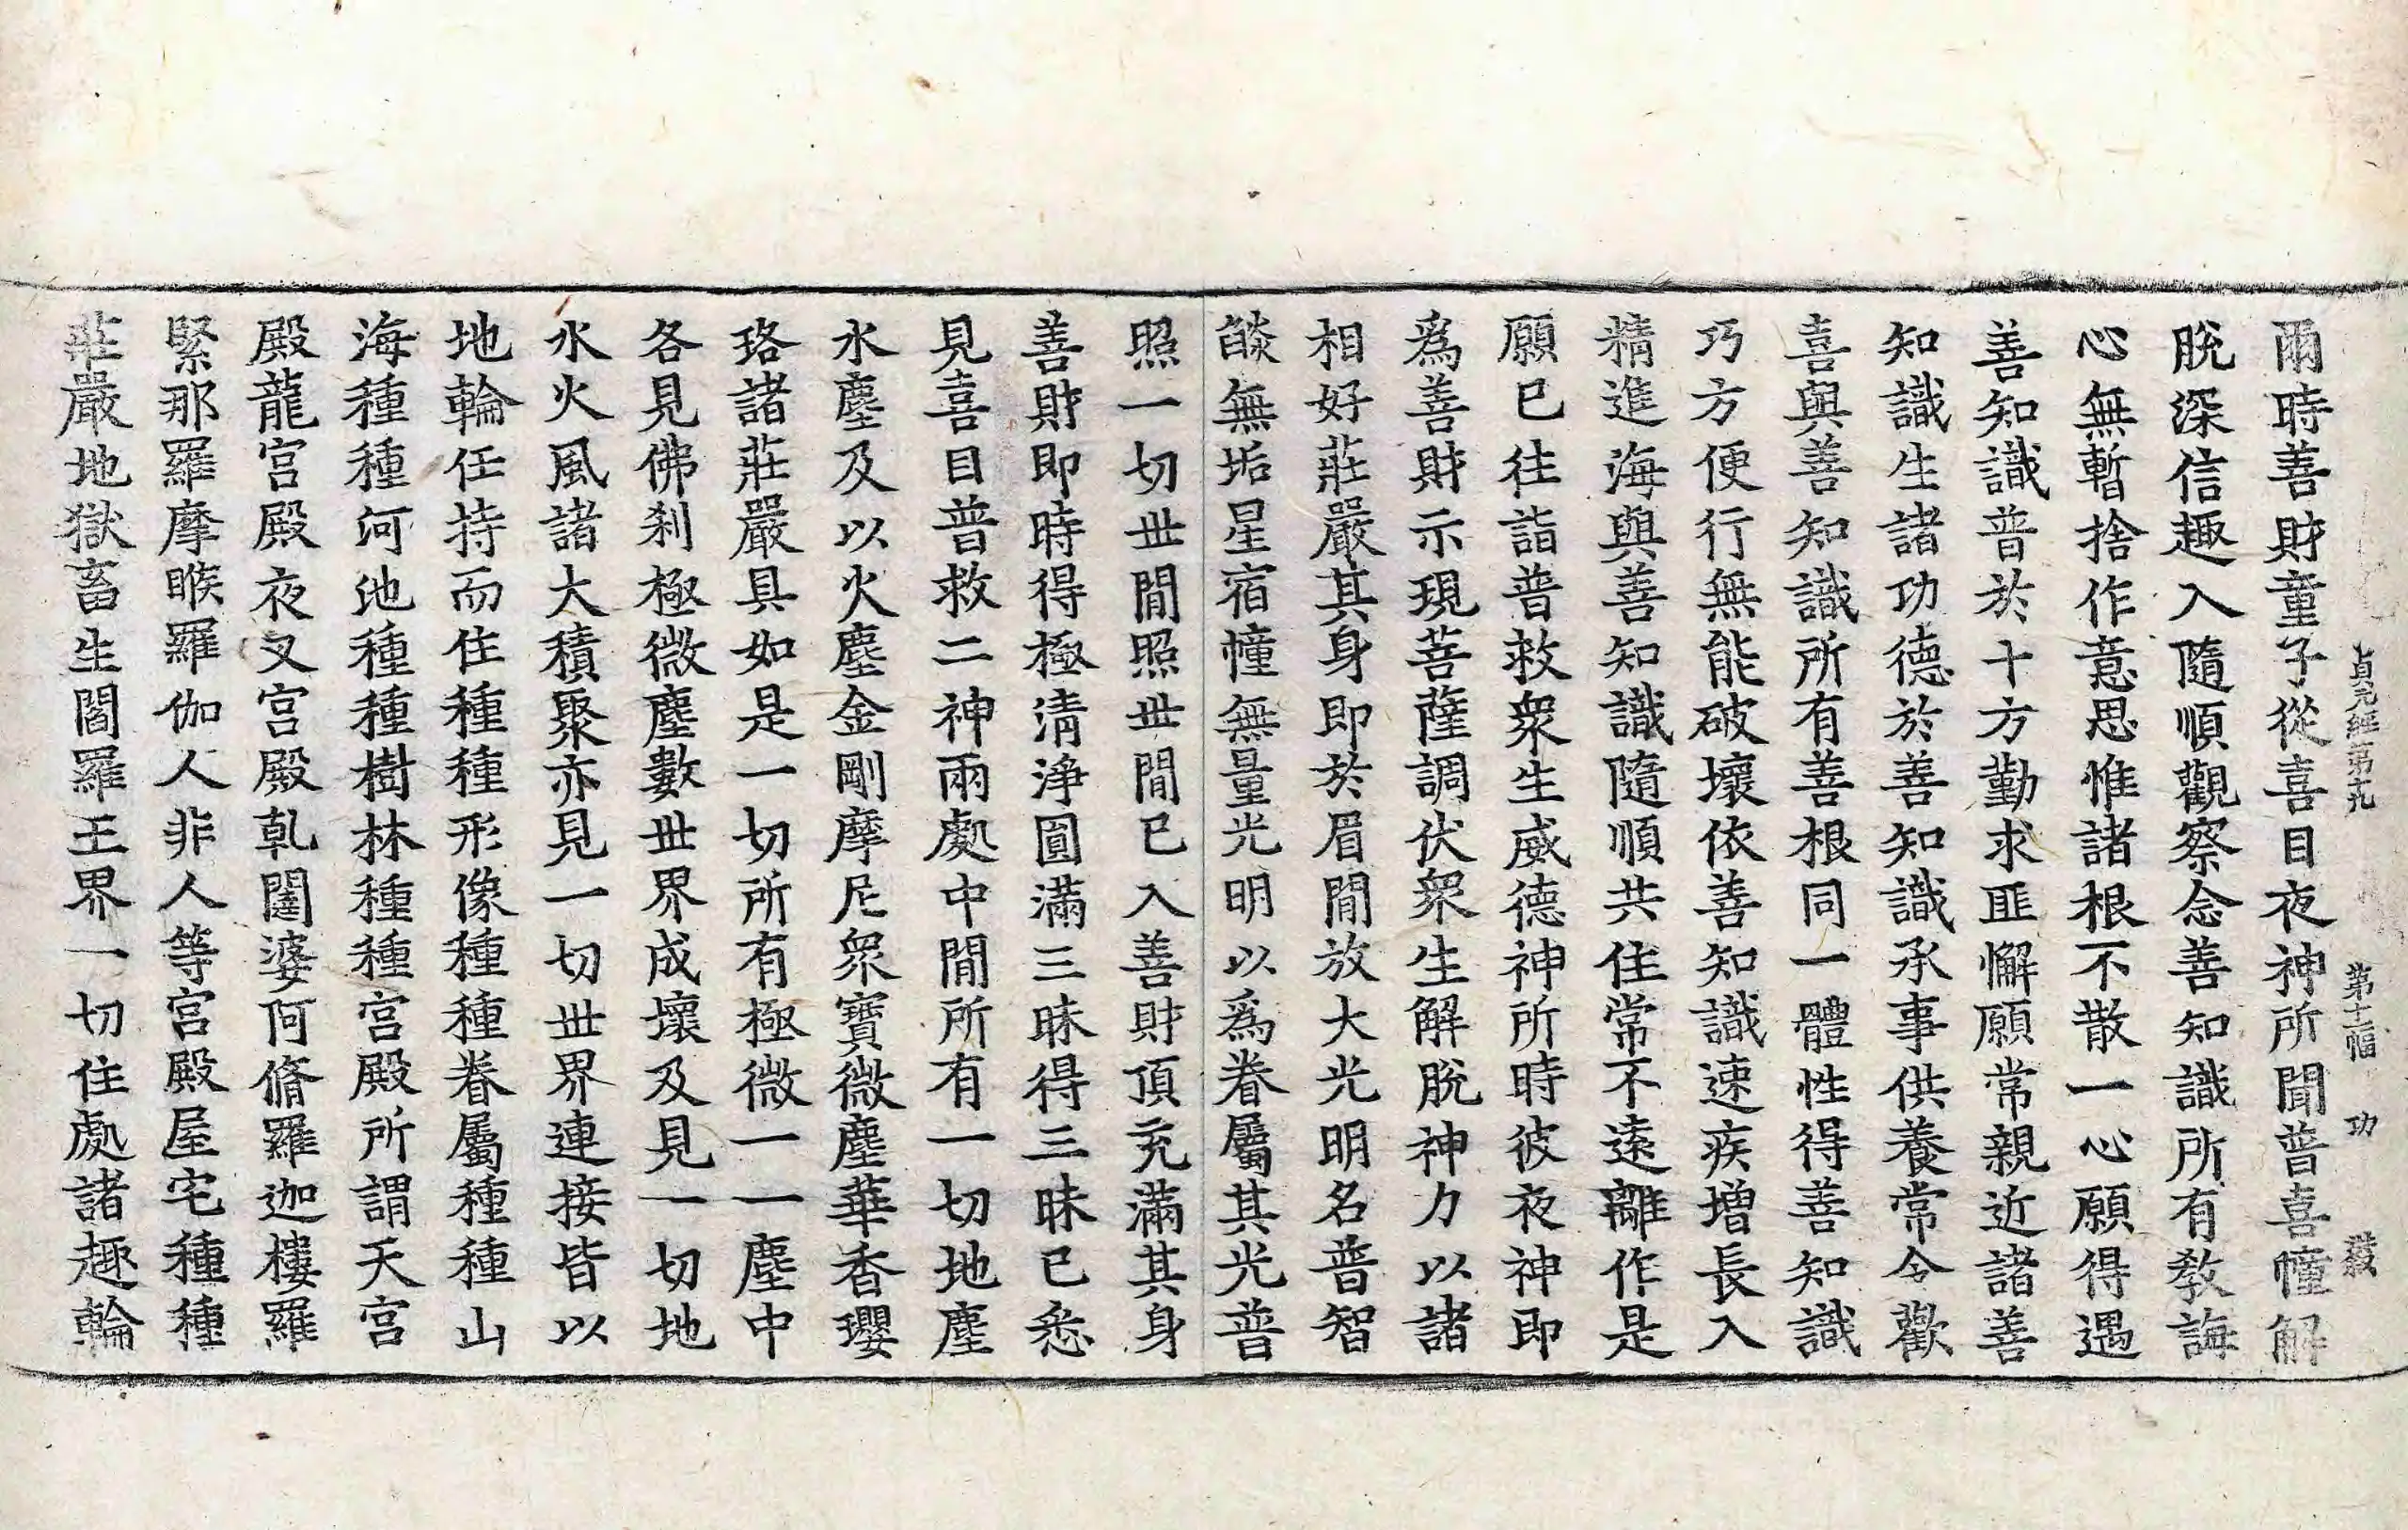 貞元經第十九 第十二幅 功
爾時善財童子從喜目夜神所聞普喜幢解
脫深信趣入隨順觀察念善知識所有教誨
心無暫捨作意思惟諸根不散一心願得遇
善知識普於十方勤求匪懈願常親近諸善
知識生諸功德於善知識承事供養常令歡
喜與善知識所有善根同一體性得善知識
巧方便行無能破壞依善知識速疾增長入
精進海與善知識隨順共住常不遠離作是
願已往詣普救衆生威德神所時彼夜神即
爲善財示現菩薩調伏衆生解脫神力以諸
相好莊嚴其身即於眉閒放大光明名普智
燄無垢星宿幢無量光明以爲眷屬其光普
照一切丗閒照丗閒已入善財頂充滿其身
善財即時得極清淨圓滿三昧得三昧已悉
見喜目普救二神兩處中閒所有一切地塵
水塵及以火塵金剛摩尼衆寶微塵華香瓔
珞諸莊嚴具如是一切所有極微一一塵中
各見佛刹極微塵數丗界成壞及見一切地
水火風諸大積聚亦見一切丗界連接皆以
地輪任持而住種種形像種種眷屬種種山
海種種河池種種樹林種種宮殿所謂天宮
殿龍宮殿夜叉宮殿乹闥婆阿脩羅迦樓羅
緊那羅摩睺羅伽人非人等宮殿屋宅種種
莊嚴地獄畜生閻羅王界一切住處諸趣輪